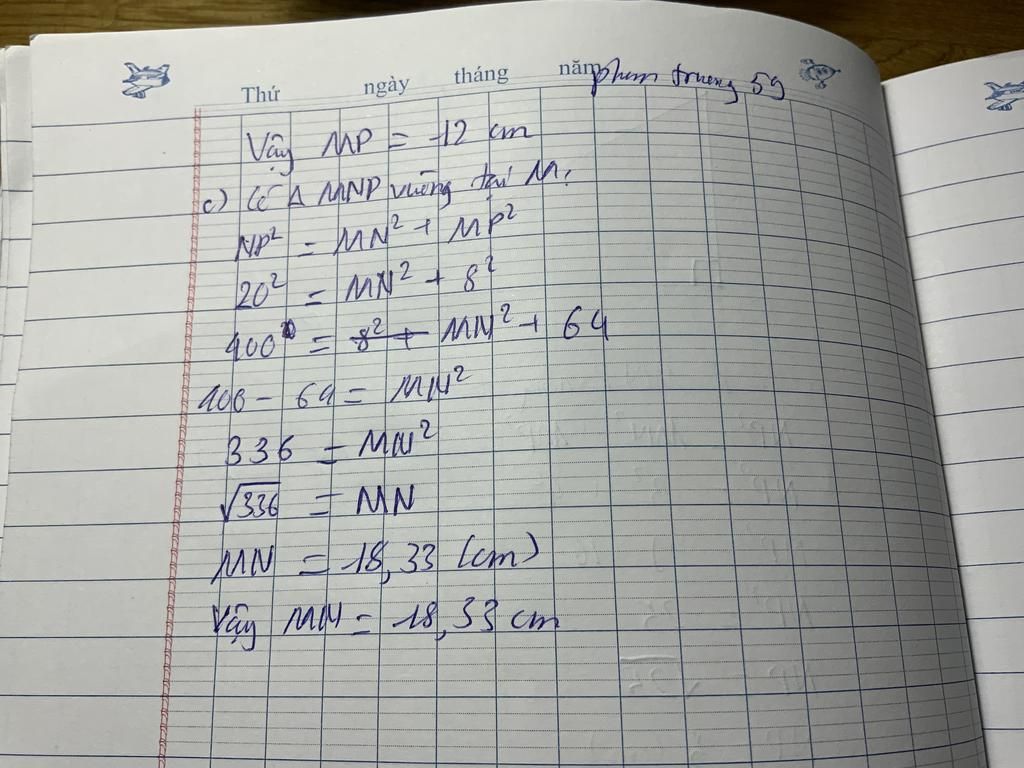 Thứ ngày tháng năm
Vậy MP = 12 cm
c) Có Δ MNP vuông tại M:
NP² = MN² + MP²
20² = MN² + 8²
400 = 8² + MN² + 64
400 - 64 = MN²
336 = MN²
√336 = MN
MN = 18,33 (cm)
Vậy MN = 18,33 cm